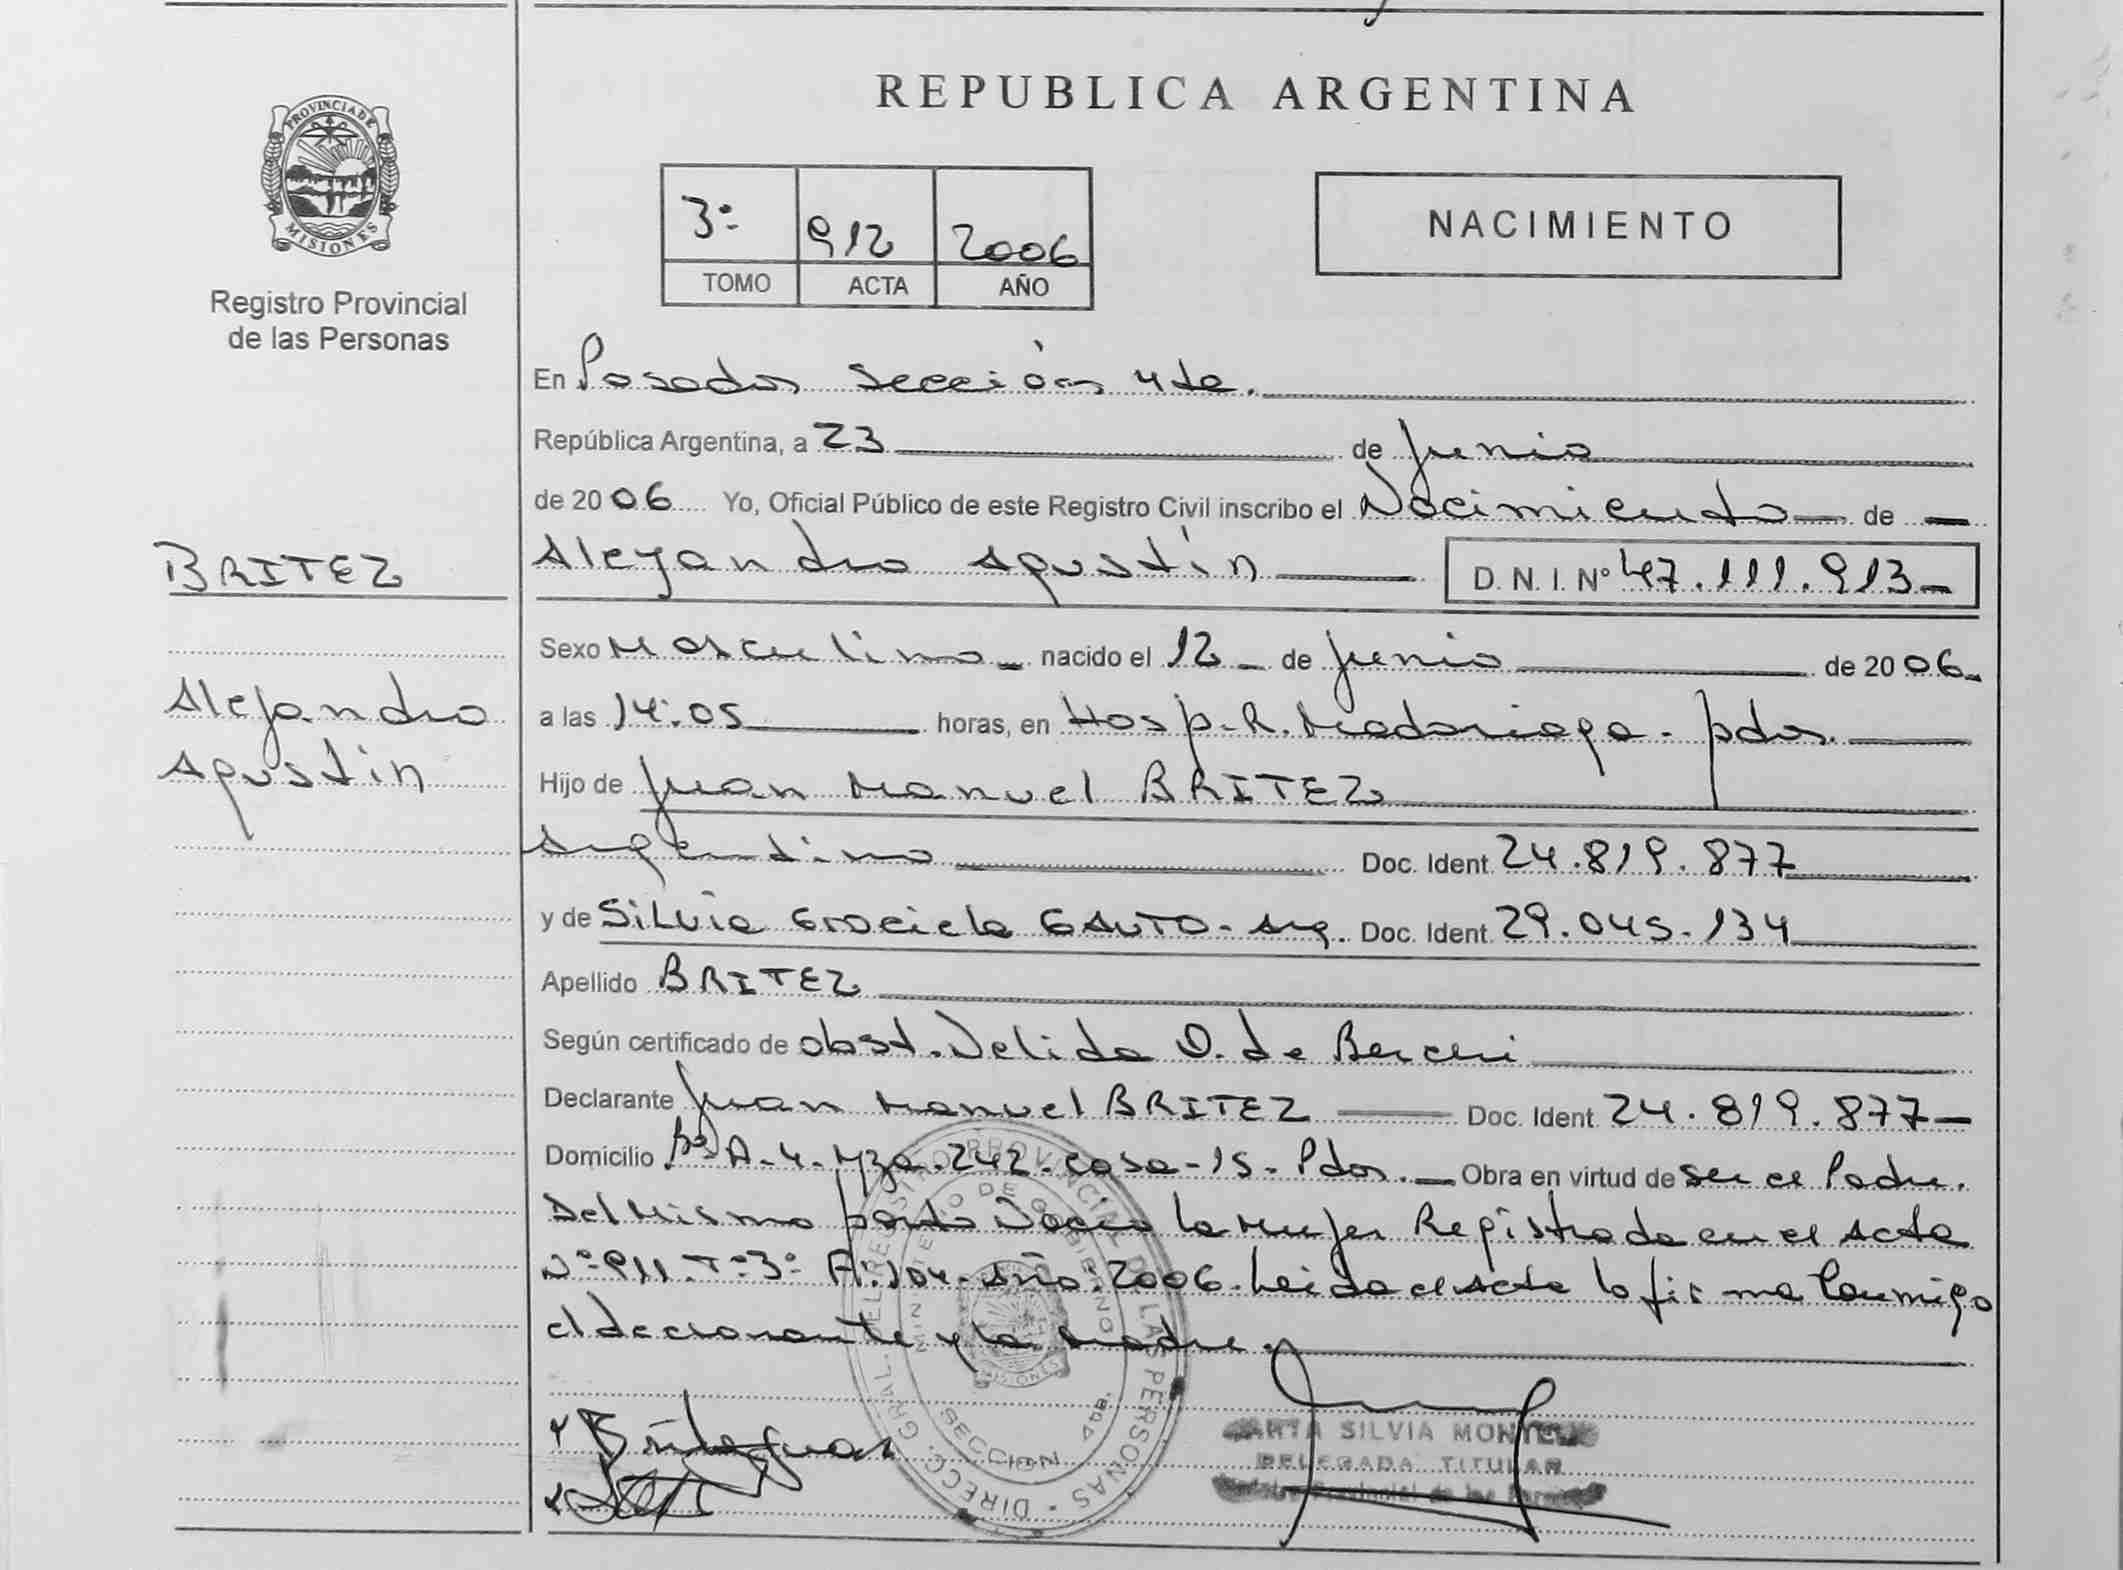 REPUBLICA ARGENTINA
PROVINCIA DE
MISIONES
Registro Provincial
de las Personas
3º 912 2006
TOMO ACTA AÑO
NACIMIENTO
En Posadas Sección 4ta.
República Argentina, a 23 de Junio
de 2006 Yo, Oficial Público de este Registro Civil inscribo el Nacimiento de
BRITEZ
Alejandro Agustín D. N. I. Nº 47.111.913
Sexo Masculino nacido el 12 de Junio de 2006
Alejandro
Agustín
a las 14:05 horas, en Hosp. R. Madariaga - Pdas.
Hijo de Juan Manuel BRITEZ
Argentino Doc. Ident. 24.819.877
y de Silvia Graciela GAUTO - Arg. Doc. Ident. 29.045.134
Apellido BRITEZ
Según certificado de obst. Delida O. de
Declarante Juan Manuel BRITEZ Doc. Ident. 24.819.877
Domicilio Bº A-4-Mza.242-casa-15-Pdas. Obra en virtud de ser el Padre.
Del Mismo parto Nació la Mujer Registrada en el Acta
Nº 911. Tº 3º Año: 2006. Leída el Acta la firma Conmigo
el declarante y la madre.
DIRECC. GRAL. DEL REGISTRO PROVINCIAL DE LAS PERSONAS
MINISTERIO DE GOBIERNO
MISIONES
SECCION 4ta.
SILVIA
DELEGADA TITULAR
Provincial de las